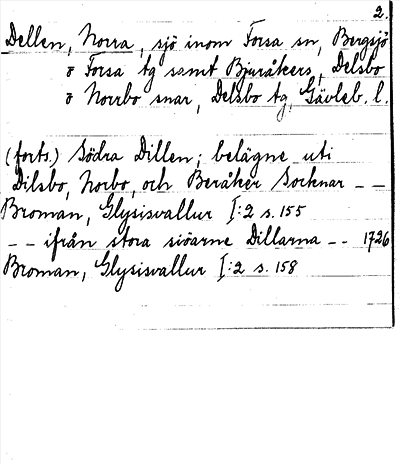 2.
Dellen, Norra, sjö inom Forsa sn, Bergsjö
o Forsa tg samt Bjuråkers, Delsbo
o Norrbo snar, Delsbo tg, Gävleb. l.
(forts.) Södra Dillen; belägne uti
Dilsbo, Norbo, och Beråker Socknar - -
Broman, Glysisvallur I:2 s. 155
- - ifrån stora siöarne Dillarna - - 1726
Broman, Glysisvallur I:2 s. 158